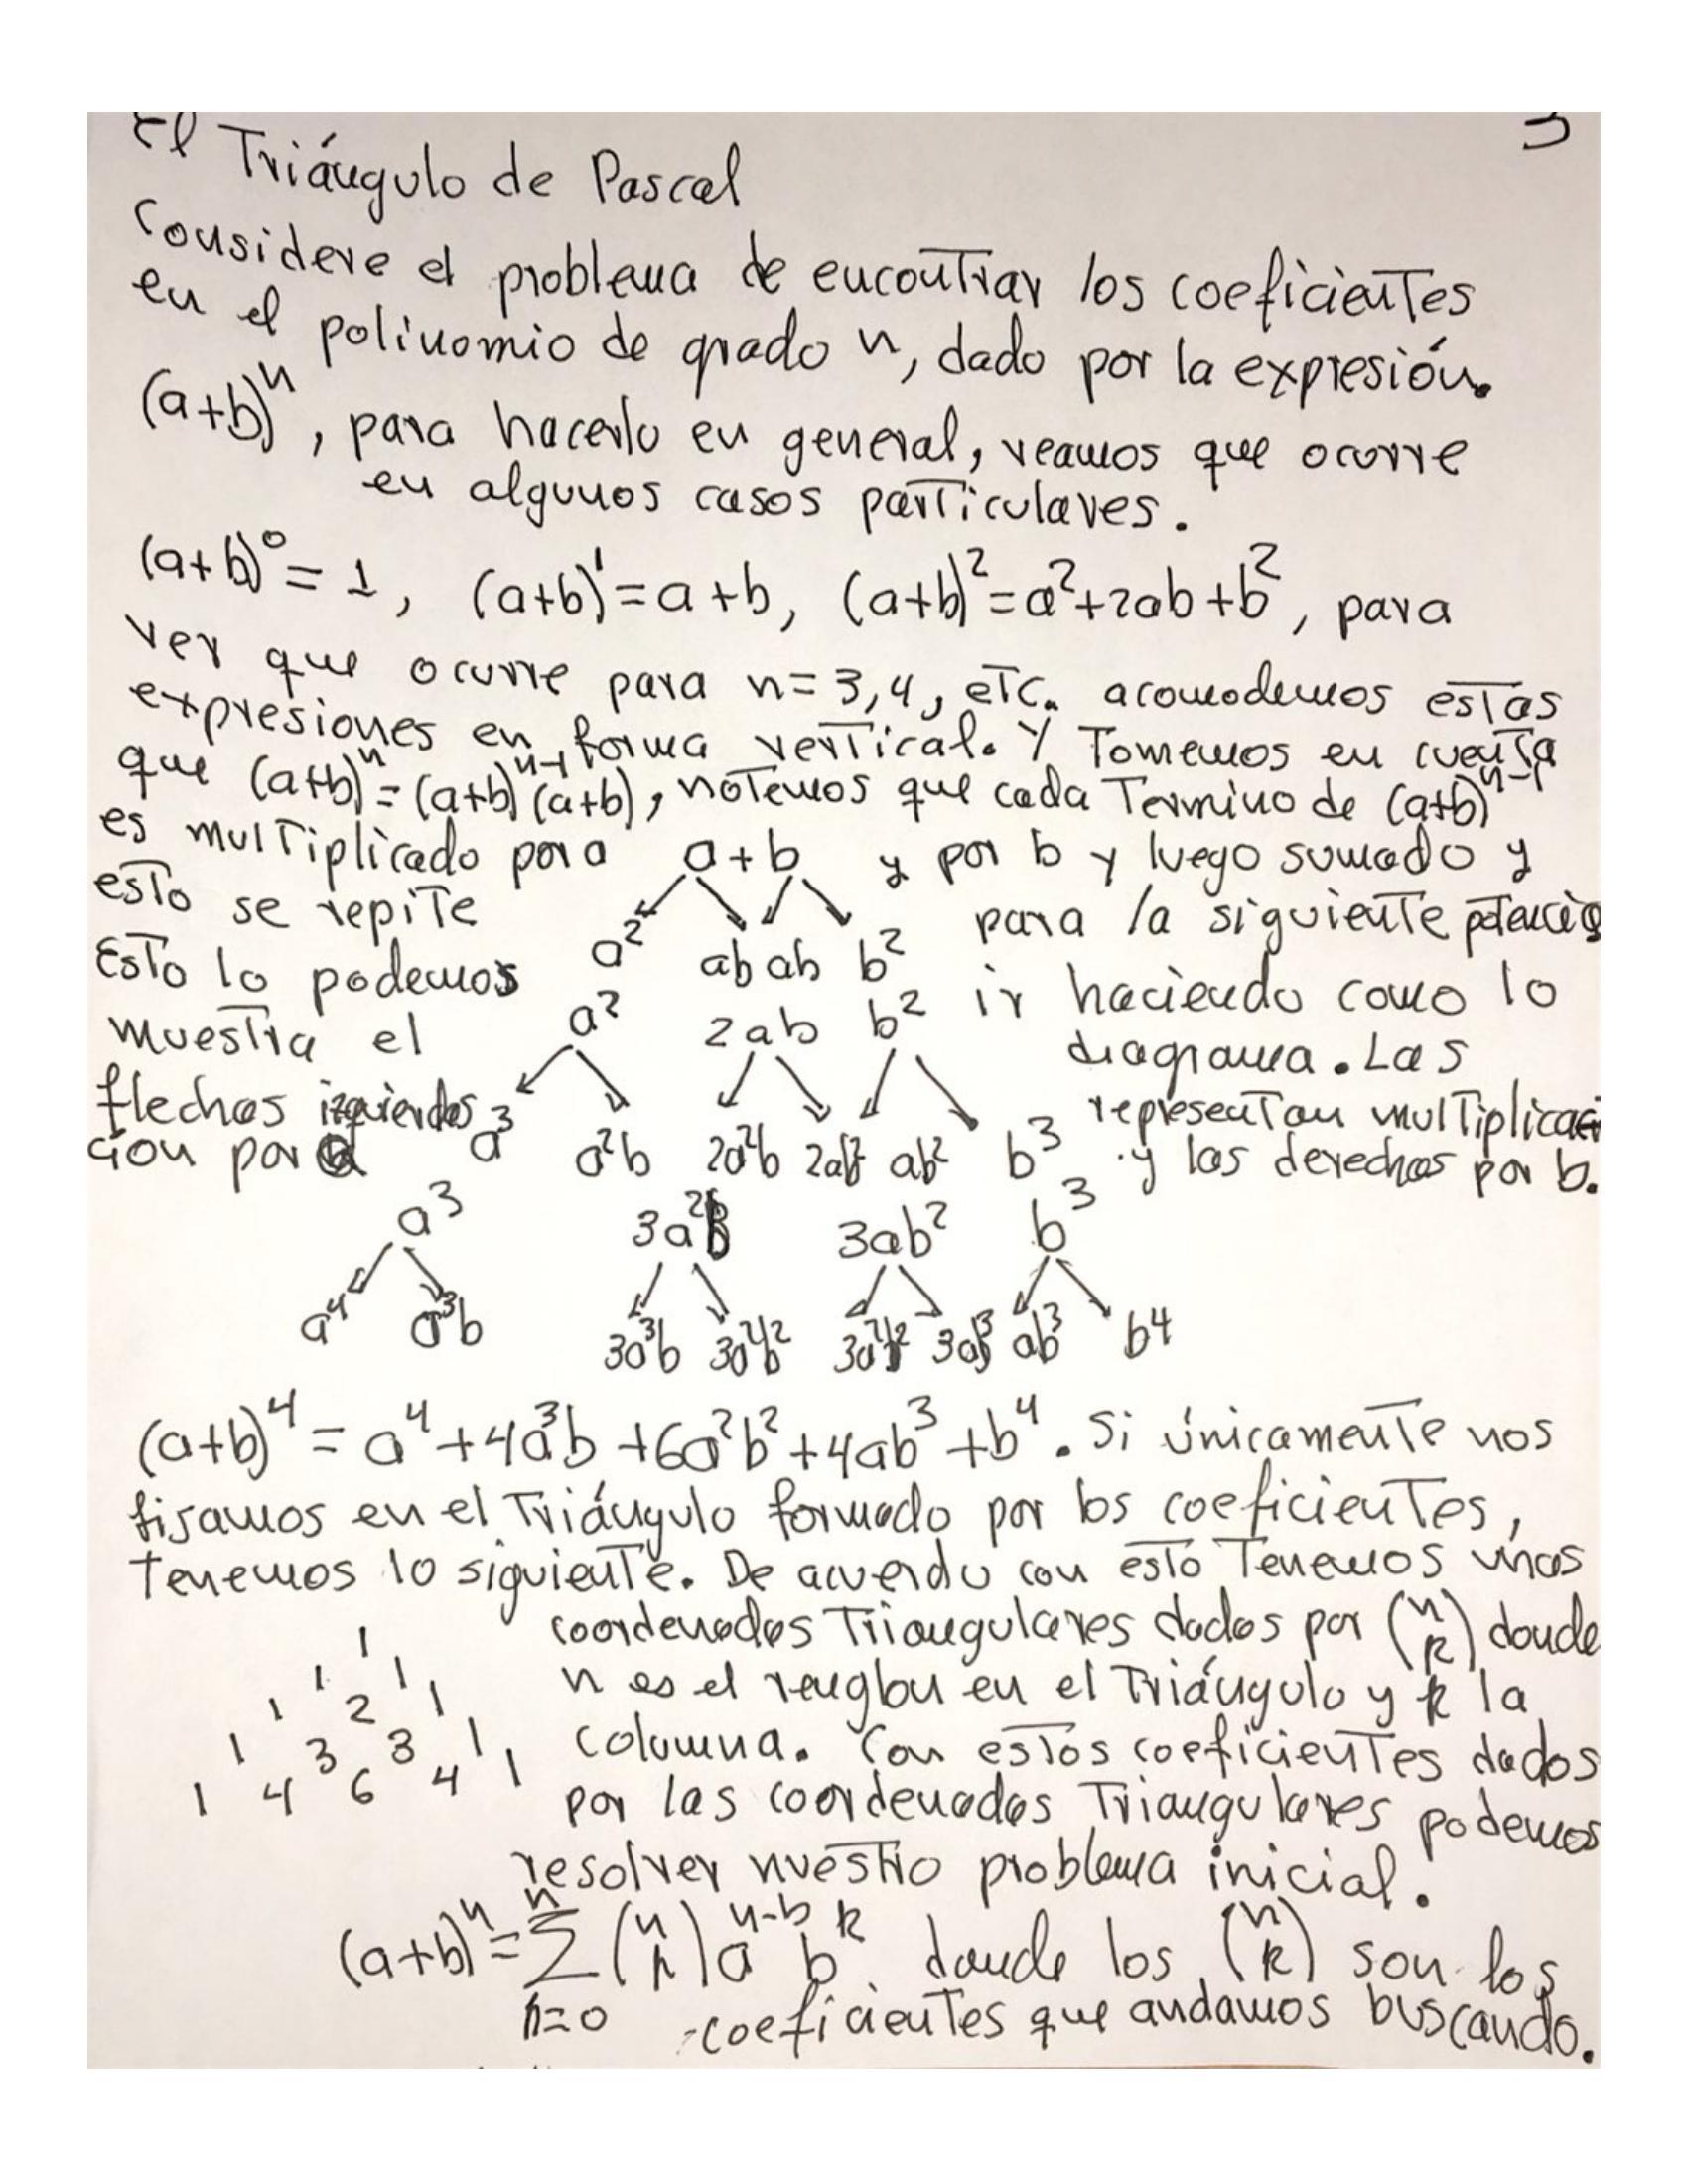 El Triángulo de Pascal 3
Considere el problema de encontrar los coeficientes
en el polinomio de grado n, dado por la expresión.
(a+b)^n, para hacerlo en general, veamos que ocurre
en algunos casos particulares.
(a+b)^0 = 1, (a+b)^1 = a+b, (a+b)^2 = a^2+2ab+b^2, para
ver que ocurre para n=3,4, etc. acomodemos estas
expresiones en forma vertical. Y Tomemos en cuenta
que (a+b)^n = (a+b)^{n-1}(a+b), notemos que cada Termino de (a+b)^{n-1}
es multiplicado por a a+b y por b y luego sumado y
esto se repite para la siguiente potencia
a^2 ab ab b^2
Esto lo podemos ir haciendo como lo
a^2 2ab b^2
muestra el diagrama. Las
flechas izquierdas representan multiplicaci
ción por a a^3 a^2b 2a^2b 2ab^2 ab^2 b^3 y las derechas por b.
a^3 3a^2b 3ab^2 b^3
a^4 a^3b 3a^3b 3a^2b^2 3a^2b^2 3ab^3 ab^3 b^4
(a+b)^4 = a^4+4a^3b+6a^2b^2+4ab^3+b^4. Si únicamente nos
fijamos en el Triángulo formado por los coeficientes,
tenemos lo siguiente. De acuerdo con esto Tenemos unas
coordenadas Triangulares dadas por (n k) donde
n es el renglon en el Triángulo y k la
columna. Con estos coeficientes dados
por las coordenadas Triangulares podemos
resolver nuestro problema inicial.
1
1 1
1 2 1
1 3 3 1
1 4 6 4 1
(a+b)^n = \sum_{k=0}^{n} (n k) a^{n-k} b^k donde los (n k) son los
coeficientes que andamos buscando.